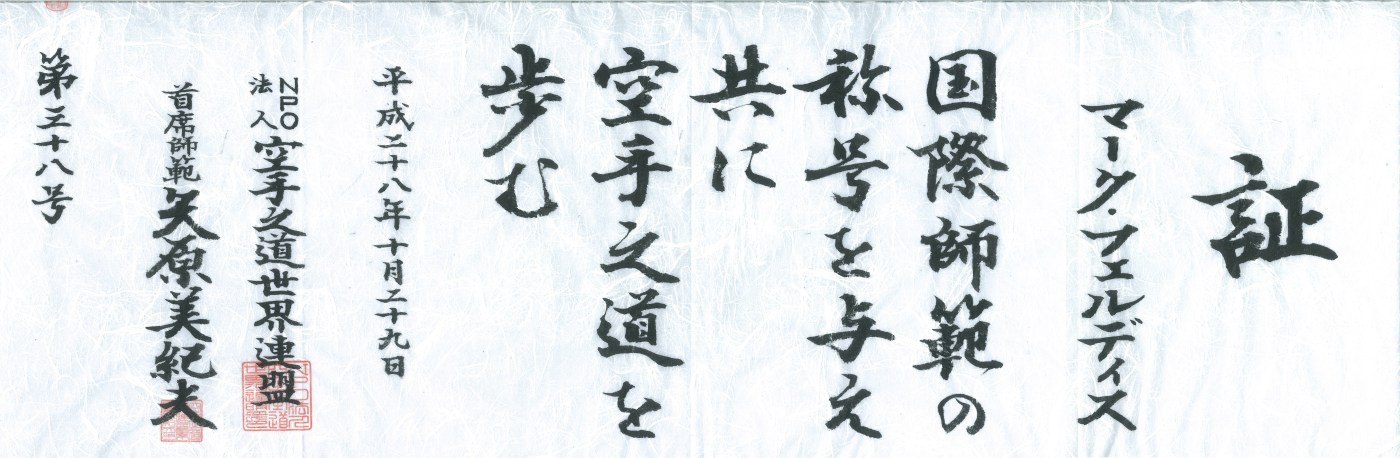 証
マーク・フェルディス
国際師範の
称号を与え
共に
空手之道を
歩む
平成二十八年十月二十九日
NPO法人空手之道世界連盟
首席師範矢原美紀夫
第三十八号